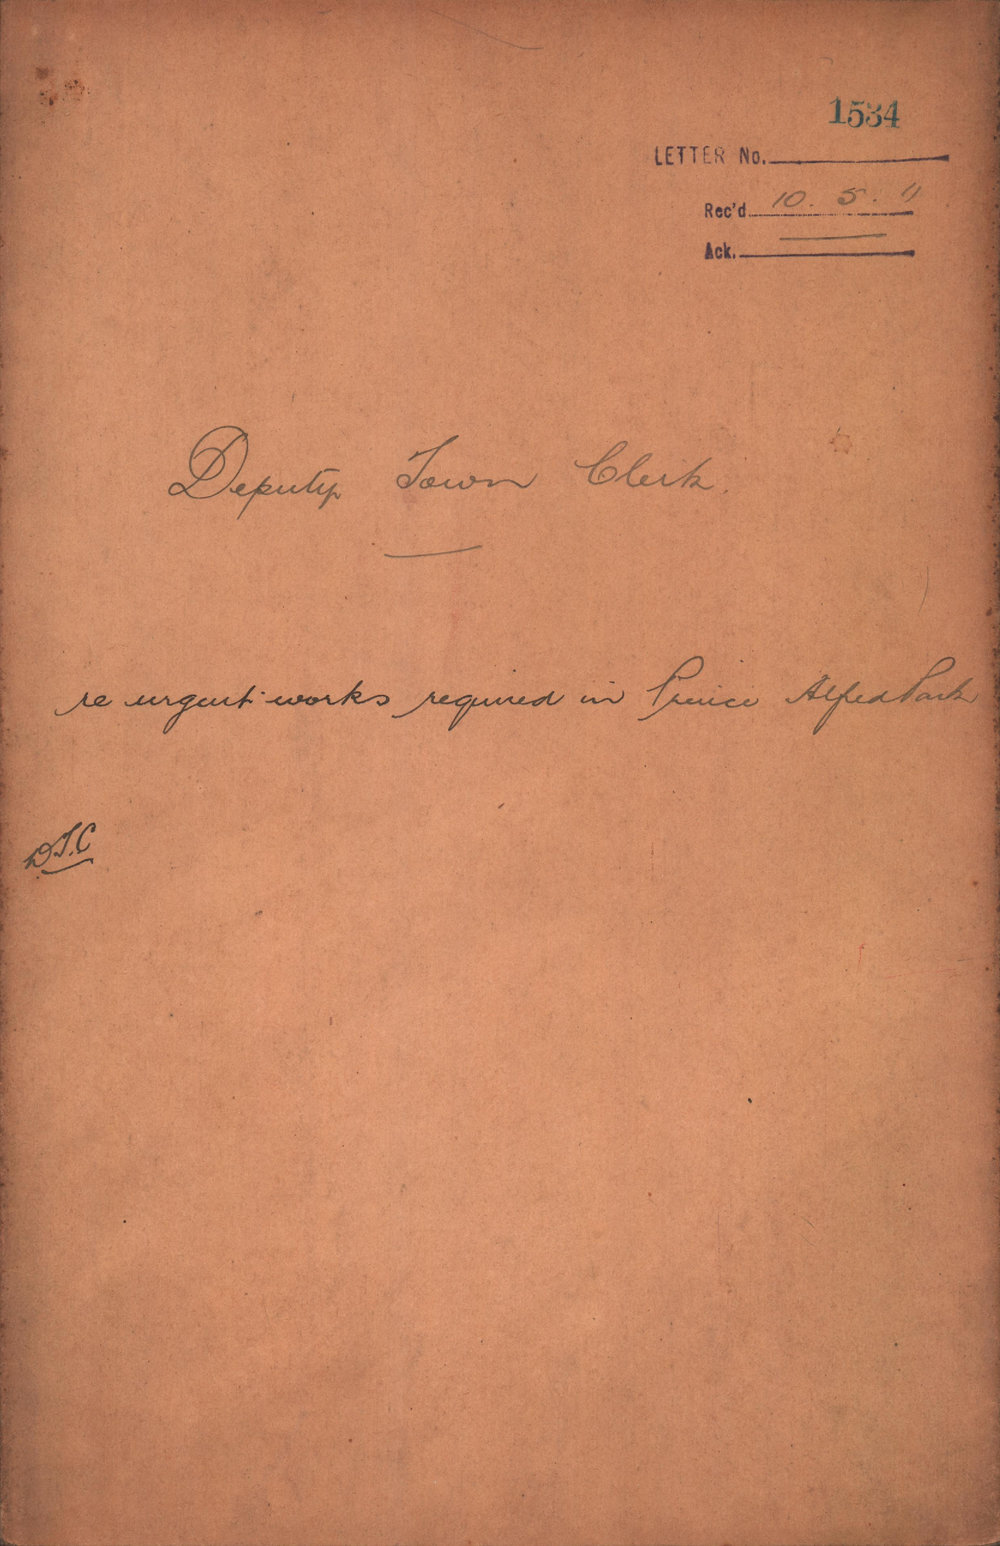 1534
LETTER No.
Rec'd 10. 5. 11
Ack.
Deputy Town Clerk.
re urgent works required in Prince Alfred Park
D.T.C